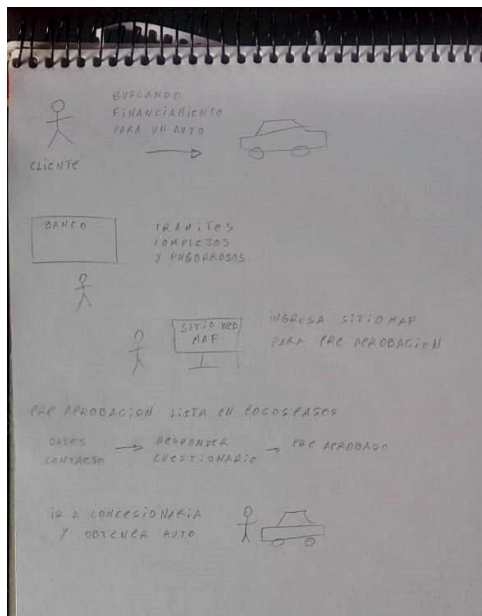 BUSCANDO
FINANCIAMIENTO
PARA UN AUTO
CLIENTE
BANCO
TRAMITES
COMPLEJOS
Y ENGORROSOS
SITIO WEB
MAF
INGRESA SITIO MAF
PARA PRE APROBACION
PRE APROBACION LISTA EN POCOS PASOS
DATOS
CONTACTO
RESPONDER
CUESTIONARIO
PRE APROBADO
IR A CONCESIONARIA
Y OBTENER AUTO